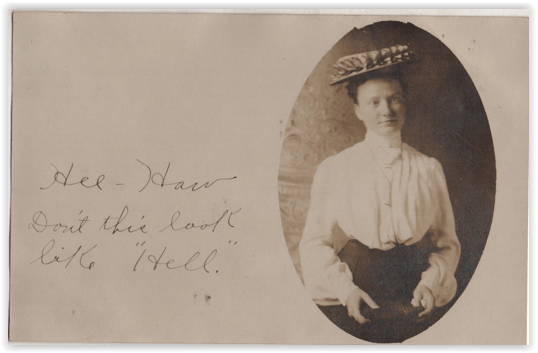 Hee-Haw
Don't this look
like "Hell."